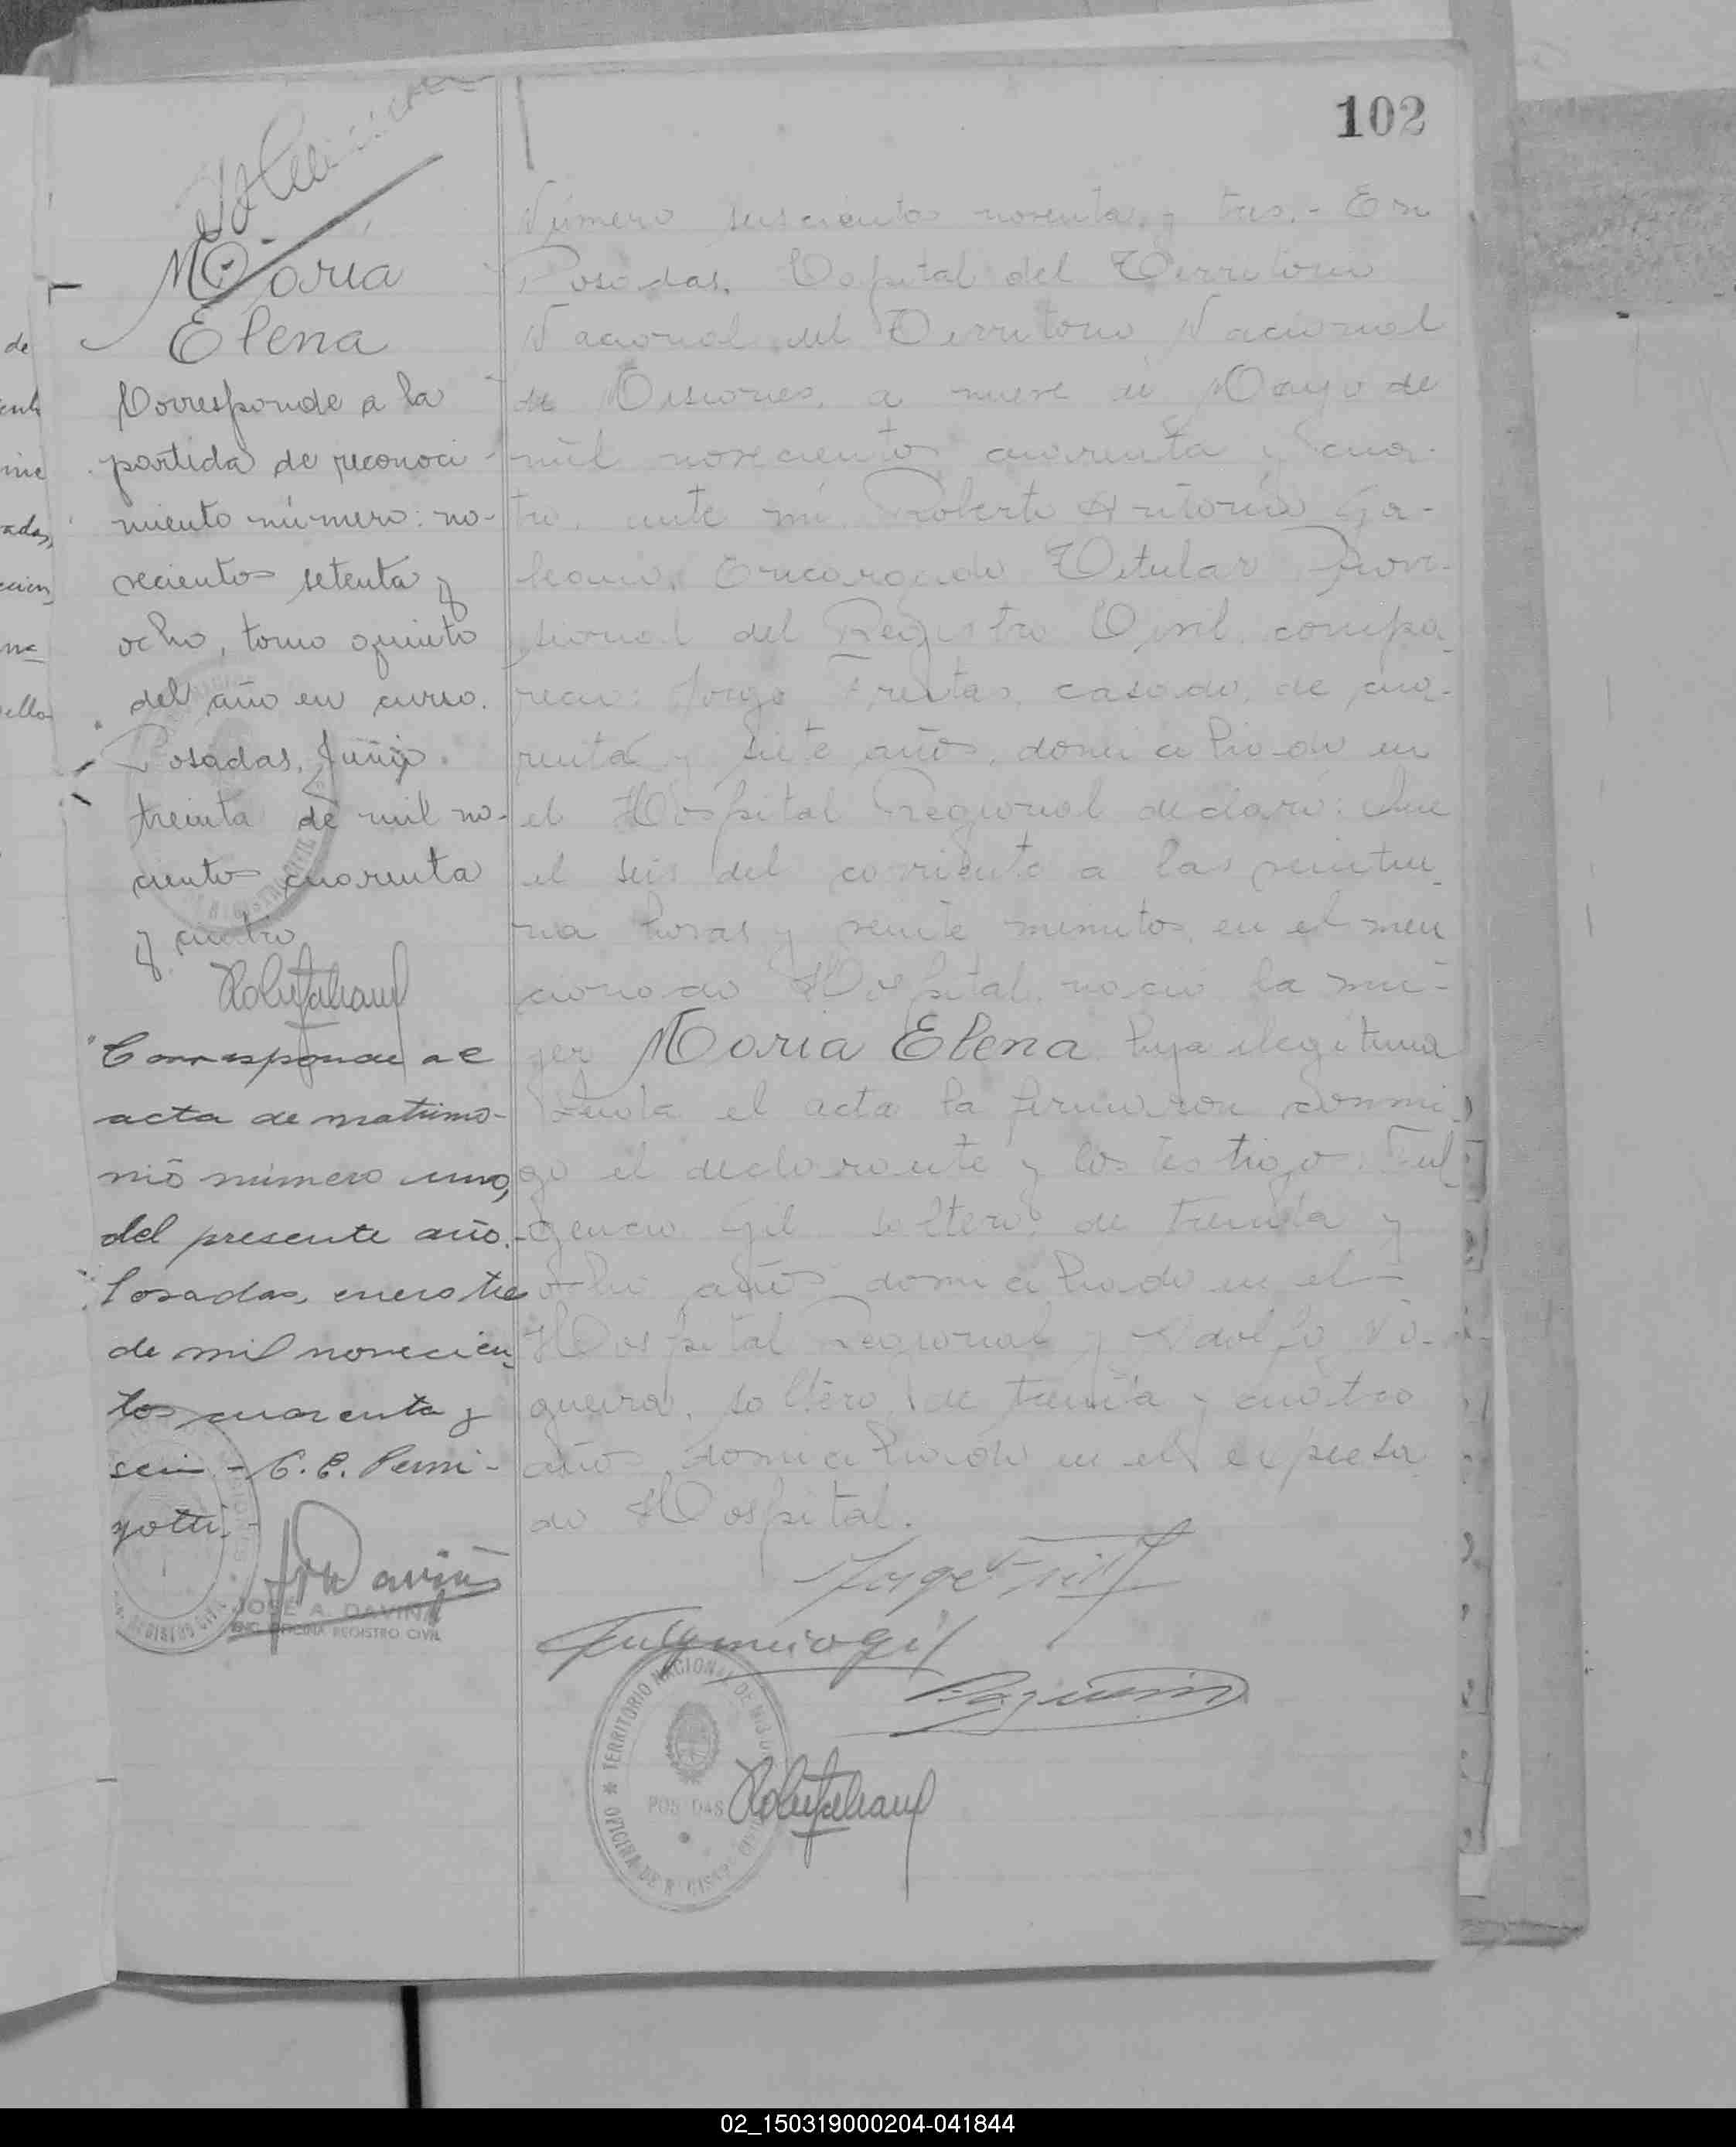 102
María
Elena
Corresponde a la
partida de reconoci-
miento número: no-
vecientos setenta y
ocho, tomo quinto
del año en curso.
Posadas, Junio
treinta de mil no-
cientos cuarenta
y cuatro
Corresponde al
acta de matrimo-
nio número uno,
del presente año.-
Posadas, enero tres
de mil novecien-
tos cuarenta y
seis - C. E. Perni-
gotti.-
JOSÉ A. DAVIÑA
ENC. OFICINA REGISTRO CIVIL
Número seiscientos noventa y tres.- En
Posadas, Capital del Territorio
Nacional del Territorio Nacional
de Misiones, a nueve de Mayo de
mil novecientos cuarenta y cua-
tro, ante mí, Roberto Antonio Ga-
leano, Encargado Titular Provi-
sional del Registro Civil, compa-
reció: Jorge Freitas, casado, de cua-
renta y siete años, domiciliado en
el Hospital Regional declaró: Que
el seis del corriente a las veintiu-
na horas y veinte minutos, en el men
cionado Hospital, nació la mu-
jer María Elena hija ilegitima
Leida el acta la firmaron conmi-
go el declarante y los testigos: Ful
gencio Gil soltero, de treinta y
ocho años domiciliado en el
Hospital Regional y Adolfo No-
gueira, soltero, de treinta y cuatro
años, domiciliado en el expresa
do Hospital.
Jorge Freitas
Fulgencio Gil
Nogueira
OFICINA DE REGISTRO CIVIL * TERRITORIO NACIONAL DE MISIONES
POSADAS
de
ada,
02_150319000204-041844